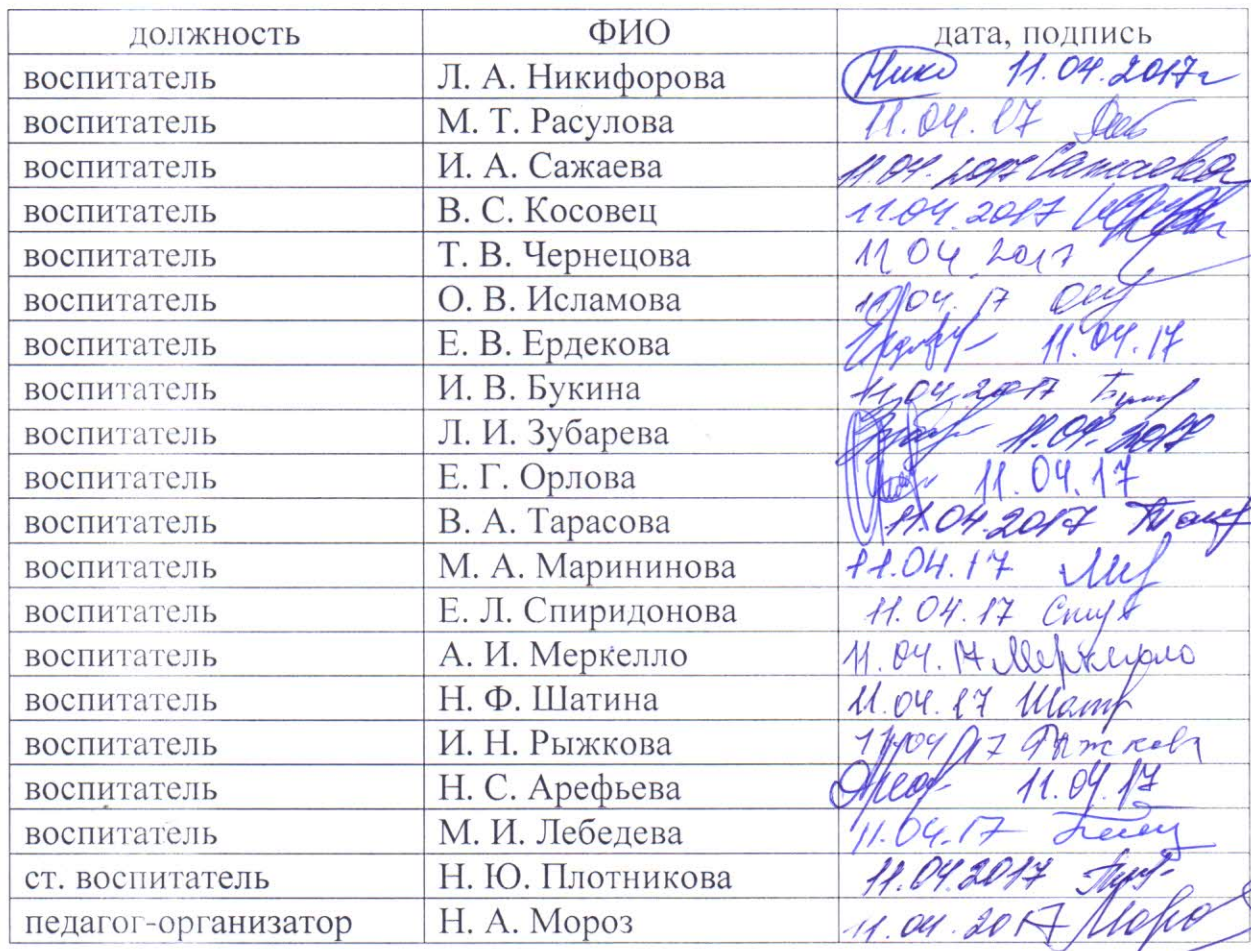 должность ФИО дата, подпись
воспитатель Л. А. Никифорова 11.04.2017г
воспитатель М. Т. Расулова 11.04.17
воспитатель И. А. Сажаева 11.04.2017 Сажаева
воспитатель В. С. Косовец 11.04.2017
воспитатель Т. В. Чернецова 11 04 2017
воспитатель О. В. Исламова 11.04.17
воспитатель Е. В. Ердекова 11.04.17
воспитатель И. В. Букина 11.04.2017
воспитатель Л. И. Зубарева 11.04.2017
воспитатель Е. Г. Орлова 11.04.17
воспитатель В. А. Тарасова 11.04.2017
воспитатель М. А. Марининова 11.04.17
воспитатель Е. Л. Спиридонова 11.04.17
воспитатель А. И. Меркелло 11.04.17 Меркелло
воспитатель Н. Ф. Шатина 11.04.17
воспитатель И. Н. Рыжкова 11.04.17 Рыжкова
воспитатель Н. С. Арефьева 11.04.17
воспитатель М. И. Лебедева 11.04.17
ст. воспитатель Н. Ю. Плотникова 11.04.2017
педагог-организатор Н. А. Мороз 11.04.2017